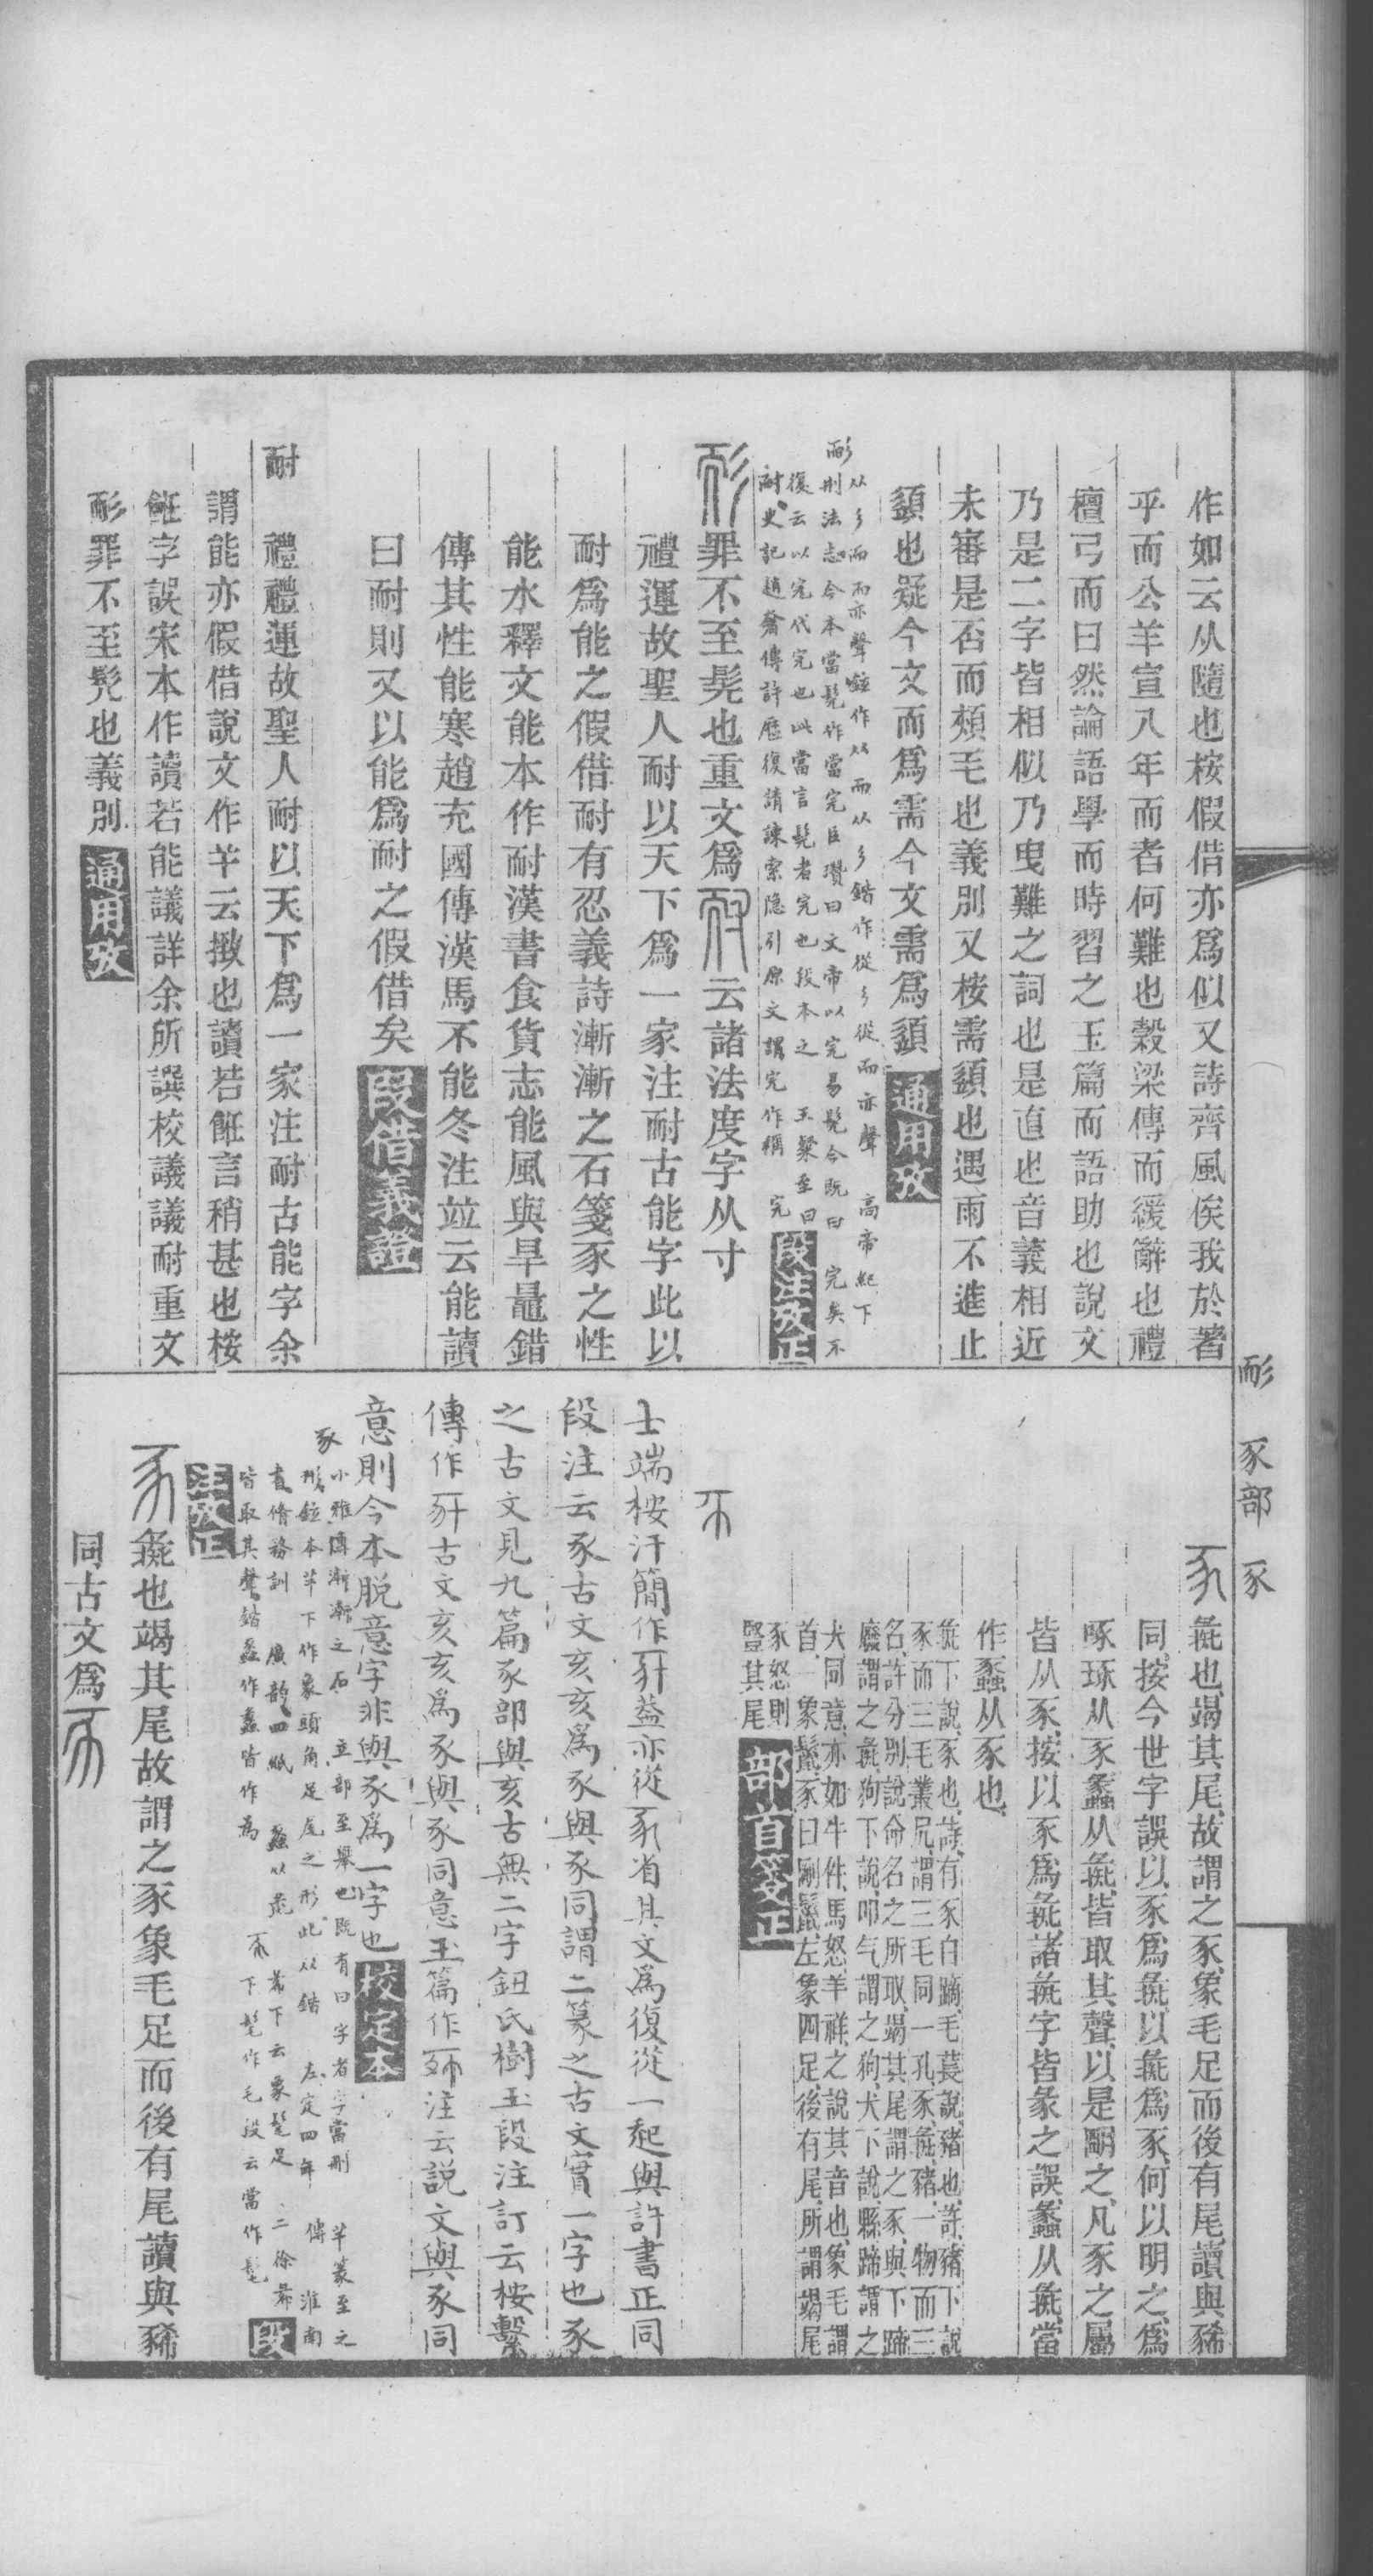 作如云从隨也桉假借亦爲似又詩齊風俟我於著
乎而公羊宣八年而者何難也穀梁傳而緩辭也禮
檀弓而曰然論語學而時習之玉篇而語助也說文
乃是二字皆相似乃曳難之詞也是直也音義相近
未審是否而頰毛也義別又桉需䇓也遇雨不進止
䇓也疑今文而爲需今文需爲䇓
通用攷
从彡而而亦聲 作从而从彡鍇作從彡從而亦聲 高帝紀下
耏刑法志今本當髡作當完臣瓚曰文帝以完易髡今既曰 完矣不
復云以完代完也此當言髡者完也段本之 王粲至曰
耐史記趙奢傳許歷復請諫索隱引原文謂完作稱 完
段注攷正
罪不至髡也重文爲耐云諸法度字从寸
禮運故聖人耐以天下爲一家注耐古能字此以
耐爲能之假借耐有忍義詩漸漸之石箋豕之性
能水釋文能本作耐漢書食貨志能風與旱鼂錯
傳其性能寒趙充國傳漢馬不能冬注竝云能讀
曰耐則又以能爲耐之假借矣
段借義證
耐 禮禮運故聖人耐以天下爲一家注耐古能字余
謂能亦假借說文作羊云撖也讀若飪言稍甚也桉
飪字誤宋本作讀若能議詳余所譔校議議耐重文
耏罪不至髡也義別
通用攷
耏 豕部 豕
豕 彘也竭其尾故謂之豕象毛足而後有尾讀與豨
同按今世字誤以豕爲彘以彘爲豕何以明之爲
啄琢从豕蠡从彘皆取其聲以是朙之凡豕之屬
皆从豕按以豕爲彘諸彘字皆彖之誤蠡从彘當
作蟸从豕也
彘下說豕也詩有豕白蹢毛萇說豬也許豬下說
豕而三毛叢凥謂三毛同一孔豕彘豬一物而三
名許分別說命名之所取竭其尾謂之豕與下蹏
廢謂之彘狗下說叩气謂之狗犬下說縣蹏謂之
犬同意亦如牛件馬怒羊祥之說其音也象毛謂
首一象鬣豕曰剛鬣左象四足後有尾所謂竭尾
豕怒則
豎其尾
部首箋正
士端桉汗簡作豣葢亦從豕省其文爲復從一起與許書正同
段注云豕古文亥亥爲豕與豕同謂二篆之古文實一字也豕
之古文見九篇豕部與亥古無二字鈕氏樹玉段注訂云桉繫
傳作豣古文亥亥爲豕與豕同意玉篇作 注云說文與豕同
意則今本脱意字非與豕爲一字也
校定本
豕
小雅傳漸漸之石 立部至舉也既有曰字者字當刪 羊篆至之
形鉉本羊下作象頭角足尾之形此从鍇 左定四年 傳 淮南
書脩務訓 廣韵四紙 蟸以彘 希下云象髦足 二徐
皆取其聲鍇蟸作蠡皆作爲 下髦作毛段云當作髦
段注攷正
彘也竭其尾故謂之豕象毛足而後有尾讀與豨
同古文爲